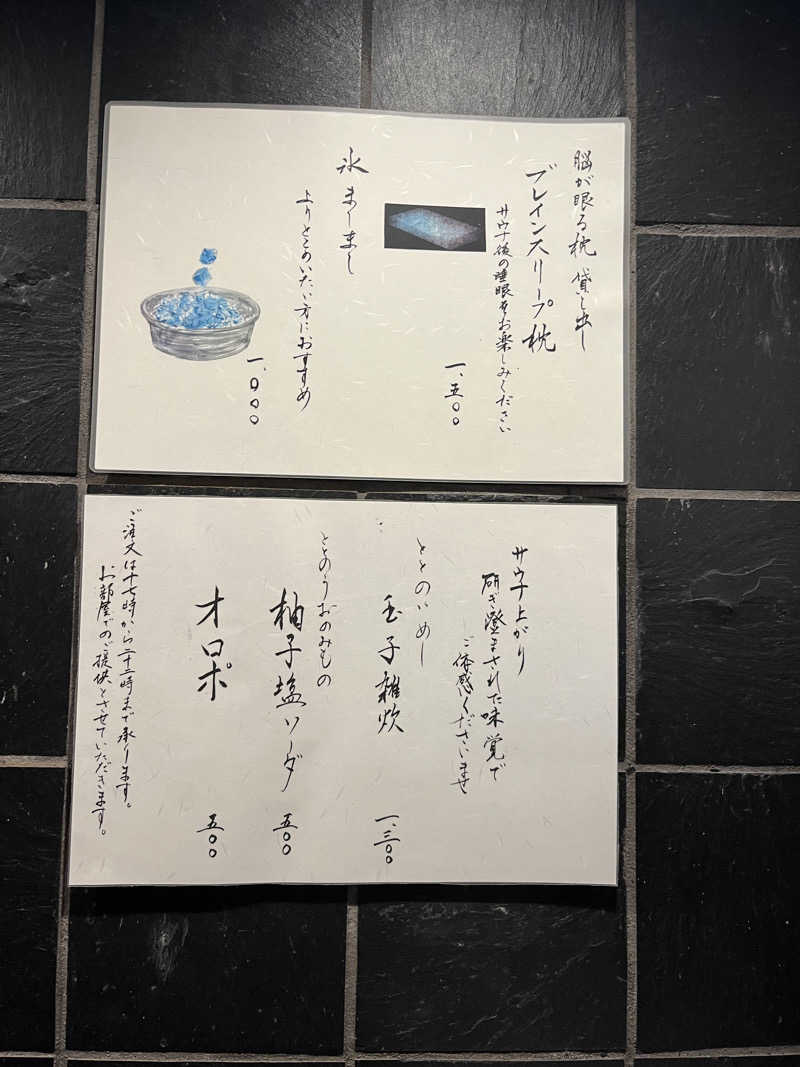 脳が眠る枕 貸し出し
ブレインスリープ枕
サウナ後の睡眠をお楽しみください
一、五〇〇
氷まーまし
よりととのいたい方におすすめ
一、〇〇〇
サウナ上がり
研ぎ澄まされた味覚で
ご体感くださいませ
ととのいめし
玉子雑炊
一、三〇〇
ととのうおのみもの
柚子塩ソーダ
五〇〇
オロポ
五〇〇
ご注文は十七時から二十二時まで承ります。
お部屋でのご提供とさせていただきます。